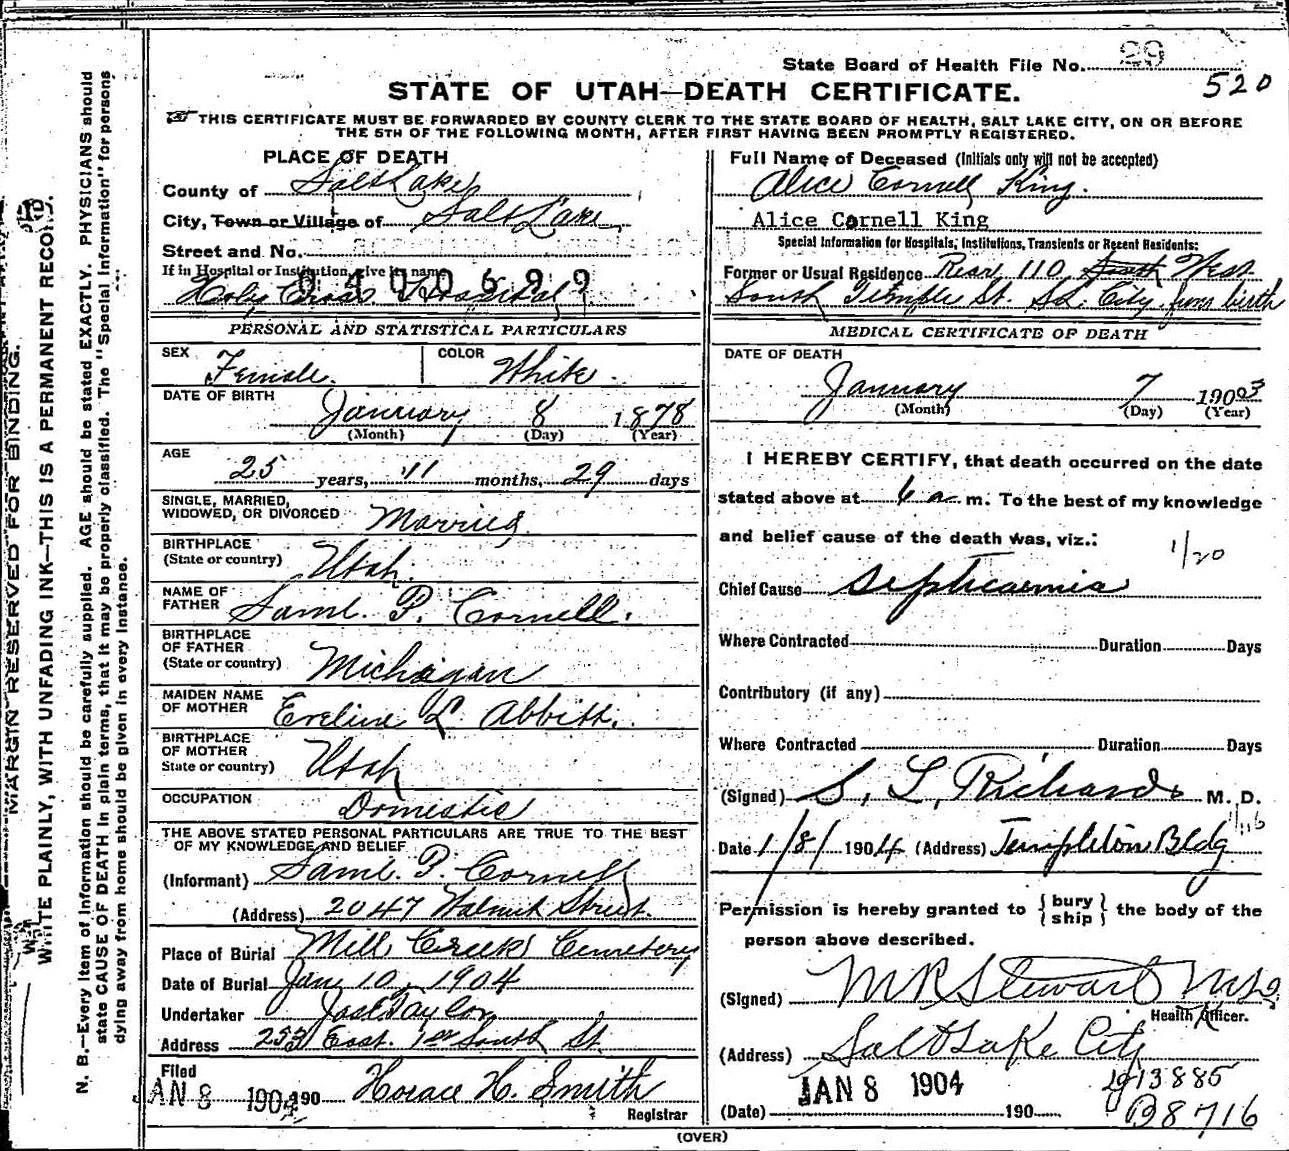 State Board of Health File No. 29
520
STATE OF UTAH—DEATH CERTIFICATE.
THIS CERTIFICATE MUST BE FORWARDED BY COUNTY CLERK TO THE STATE BOARD OF HEALTH, SALT LAKE CITY, ON OR BEFORE
THE 5TH OF THE FOLLOWING MONTH, AFTER FIRST HAVING BEEN PROMPTLY REGISTERED.
PLACE OF DEATH
County of Salt Lake
City, Town or Village of Salt Lake
Street and No.
If in Hospital or Institution, give its name
Holy Cross Hospital
0400699
PERSONAL AND STATISTICAL PARTICULARS
SEX Female. COLOR White.
DATE OF BIRTH
January 8 1878
(Month) (Day) (Year)
AGE
25 years, 11 months, 29 days
SINGLE, MARRIED,
WIDOWED, OR DIVORCED Married
BIRTHPLACE
(State or country) Utah.
NAME OF
FATHER Saml. P. Cornell.
BIRTHPLACE
OF FATHER
(State or country) Michigan
MAIDEN NAME
OF MOTHER Eveline L. Abbitt.
BIRTHPLACE
OF MOTHER
State or country) Utah
OCCUPATION Domestic
THE ABOVE STATED PERSONAL PARTICULARS ARE TRUE TO THE BEST
OF MY KNOWLEDGE AND BELIEF
(Informant) Saml. P. Cornell
(Address) 2047 Walnut Street.
Place of Burial Mill Creek Cemetery
Date of Burial Jan 10, 1904
Undertaker Jos Taylor
Address 253 East. 1st South St.
Filed
JAN 8 1904 190 Horace H. Smith
Registrar
Full Name of Deceased (Initials only will not be accepted)
Alice Cornell King.
Alice Cornell King
Special Information for Hospitals, Institutions, Transients or Recent Residents:
Former or Usual Residence Rear 110 South West
South Temple St. S.L. City. from birth
MEDICAL CERTIFICATE OF DEATH
DATE OF DEATH
January 7 19003
(Month) (Day) (Year)
I HEREBY CERTIFY, that death occurred on the date
stated above at 6 a m. To the best of my knowledge
and belief cause of the death was, viz.:
1/20
Chief Cause Septicaemia
Where Contracted Duration Days
Contributory (if any)
Where Contracted Duration Days
(Signed) S. L. Richards M. D.
1/116
Date 1/8/ 1904 (Address) Templeton Bldg
Permission is hereby granted to {bury ship} the body of the
person above described.
(Signed) M R Stewart M.D.
Health Officer.
(Address) Salt Lake City
JAN 8 1904
(Date) 190
13885
B8716
(OVER)
MARGIN RESERVED FOR BINDING.
WRITE PLAINLY, WITH UNFADING INK—THIS IS A PERMANENT RECORD.
N. B.—Every item of information should be carefully supplied. AGE should be stated EXACTLY. PHYSICIANS should
state CAUSE OF DEATH in plain terms, that it may be properly classified. The "Special Information" for persons
dying away from home should be given in every instance.